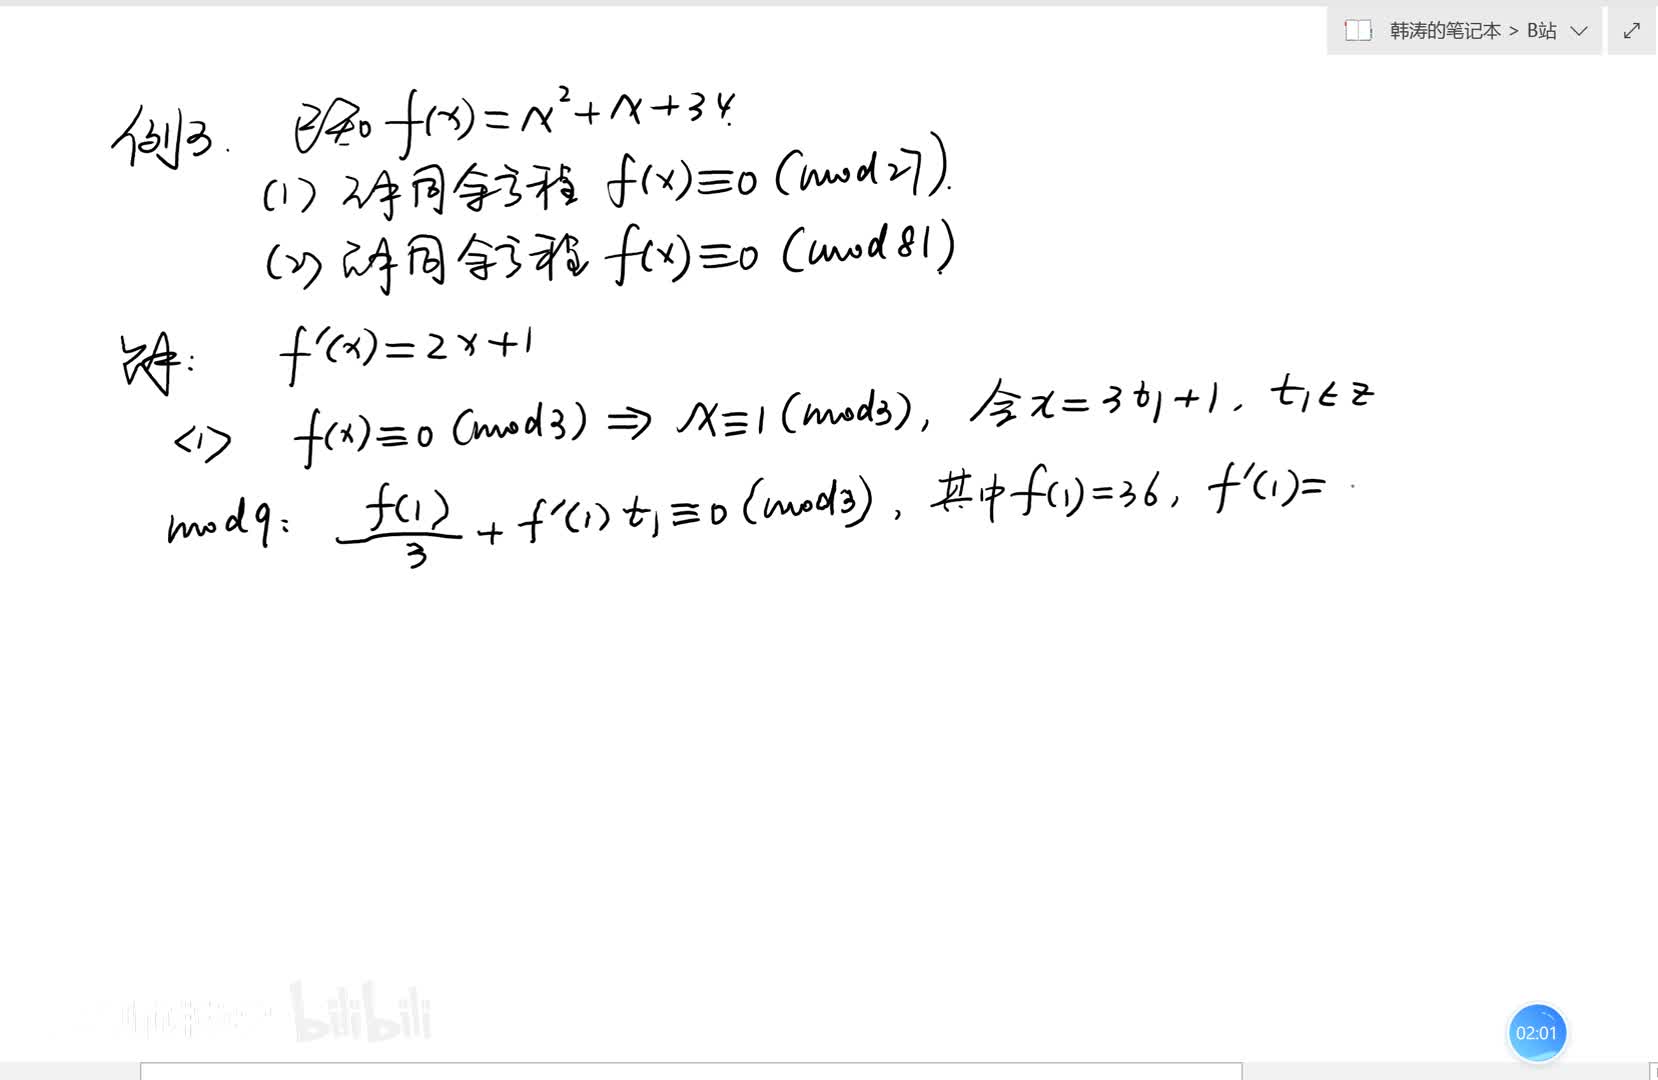 韩涛的笔记本 > B站
例3. 已知 f(x)=x²+x+34.
(1) 解同余方程 f(x)≡0 (mod27).
(2) 解同余方程 f(x)≡0 (mod81)
解: f'(x)=2x+1
<1> f(x)≡0 (mod3) ⇒ x≡1 (mod3), 令x=3t₁+1, t₁∈Z
mod9: f(1)/3 + f'(1) t₁≡0 (mod3), 其中f(1)=36, f'(1)=
bilibili
02:01